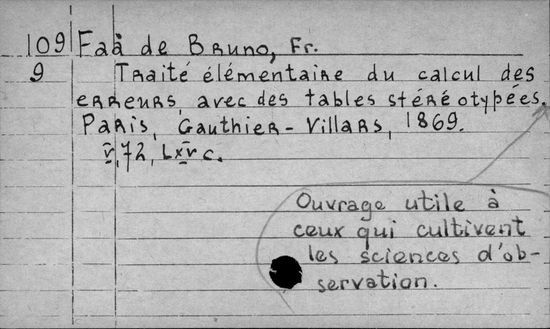 109 Faà de Bruno, Fr.
9 Traité élémentaire du calcul des
erreurs, avec des tables stéréotypées.
Paris, Gauthier-Villars, 1869.
V, 72, LXV c.
Ouvrage utile à
ceux qui cultivent
les sciences d'ob-
servation.